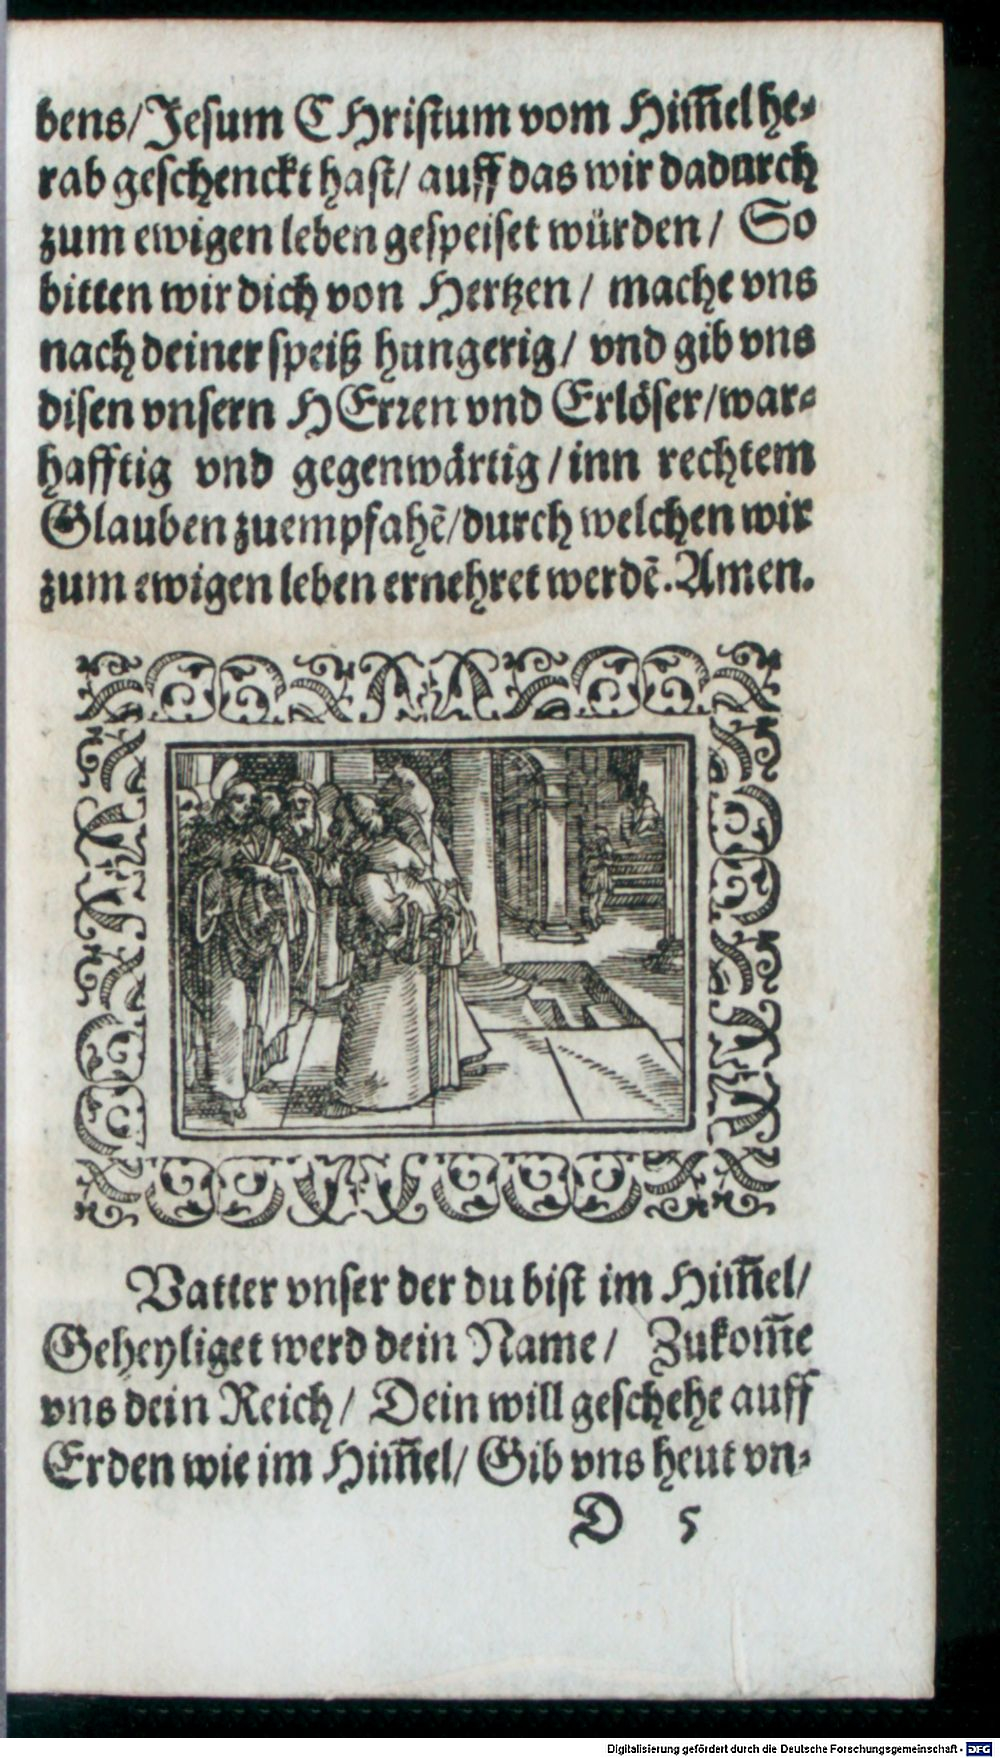 bens/Jesum CHristum vom Him̄el he⸗
rab geschenckt hast/ auff das wir dadurch
zum ewigen leben gespeiset würden/ So
bitten wir dich von Hertzen/ mache vns
nach deiner speiß hungerig/ vnd gib vns
disen vnsern HErꝛen vnd Erlöser/war⸗
hafftig vnd gegenwärtig/inn rechtem
Glauben zuempfahē/durch welchen wir
zum ewigen leben ernehret werdē. Amen.
Vatter vnser der du bist im Him̄el/
Geheyliget werd dein Name/ Zukom̄e
vns dein Reich/ Dein will geschehe auff
Erden wie im Him̄el/ Gib vns heut vn⸗
D 5
Digitalisierung gefördert durch die Deutsche Forschungsgemeinschaft - DFG